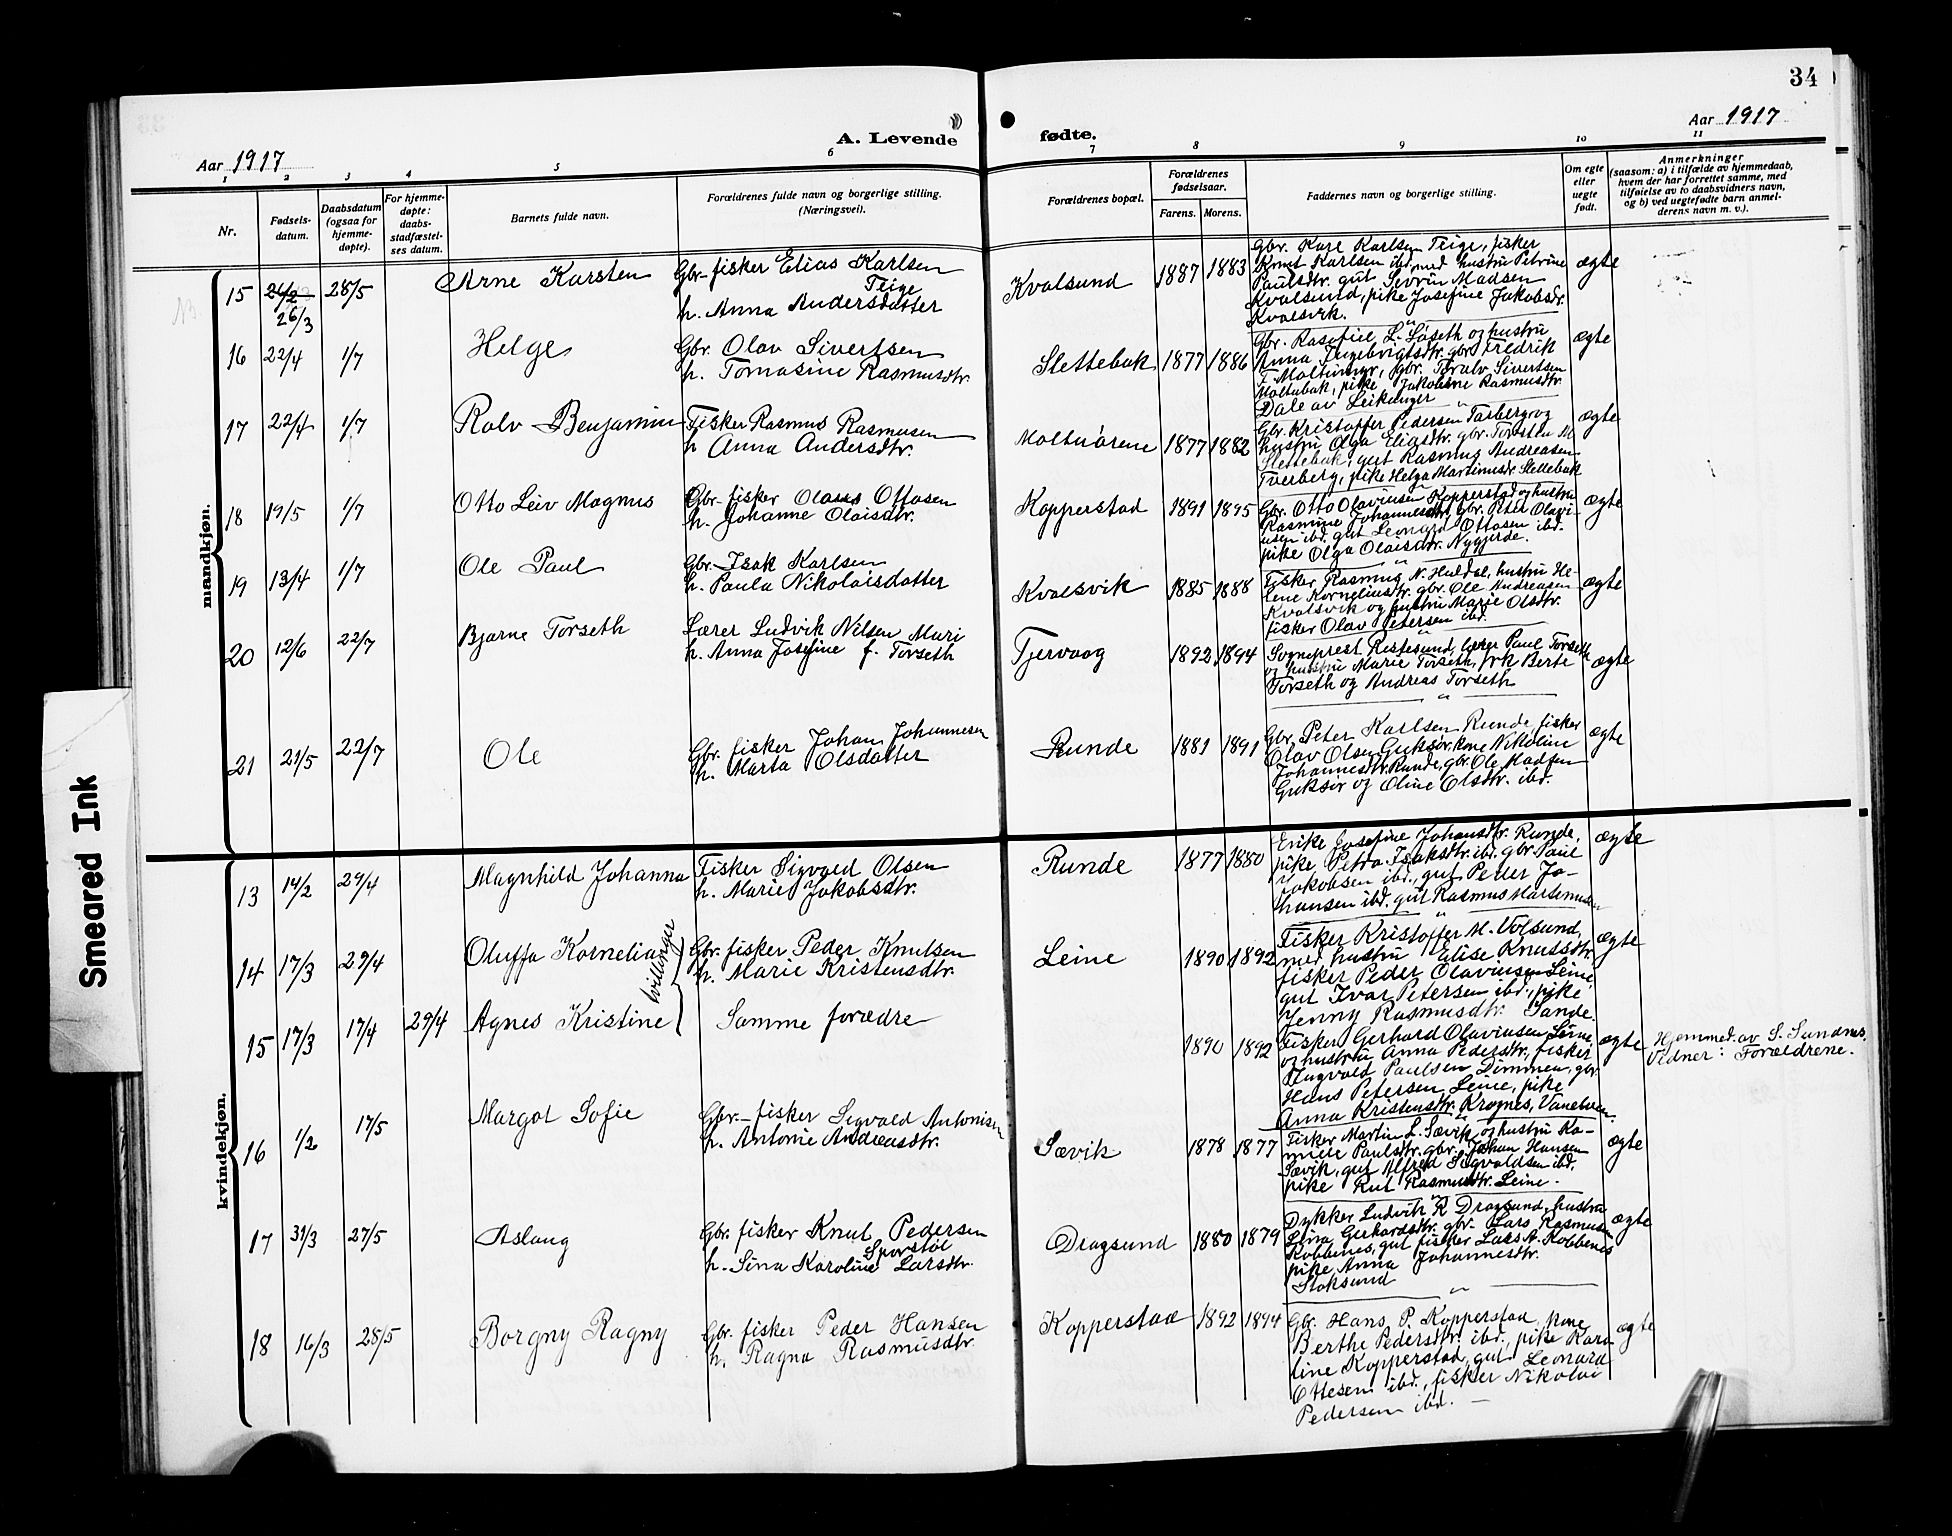 34
Aar 1917
A. Levende
fødte.
Aar 1917
1 2 3 4 5 6 7 8 9 10 11
Nr.
Fødsels-
datum.
Daabsdatum
(ogsaa for
hjemme-
døpte).
For hjemme-
døpte:
daabs-
stadfæstel-
ses datum.
Barnets fulde navn.
Forældrenes fulde navn og borgerlige stilling.
(Næringsvei).
Forældrenes bopæl.
Forældrenes
fødselsaar.
Farens. Morens.
Faddernes navn og borgerlige stilling.
Om egte
eller
uegte
født.
Anmerkninger
(saasom: a) i tilfælde av hjemmedaab,
hvem der har forrettet samme, med
tilføielse av to daabsvidners navn,
og b) ved uegtefødte barn anmel-
derens navn m. v.).
mandkjøn.
15 24/2 26/3 28/5 Arne Karsten
Gbr-fisker Elias Karlsen
Teige
h. Anna Andersdatter
Kvalsund 1887 1883
Gbr. Karl Karlsen Teige, fisker
Knut Karlsen ibd. med hustru Petrine
Paulsdtr. gut Sivrin Madsen
Kvalsund, pike Josefine Jakobsdr.
Kvalsvik.
ægte
16 22/4 1/7 Helge
Gbr. Olav Sivertsen
h. Tomasine Rasmusdtr.
Slettebak 1877 1886
Gbr. Rasefiel L. Løseth og hustru
Anna Ingebrigtsdtr. gbr. Fredrik
F. Moltumyr, gbr. Toralv Sivertsen
Moltubak, pike Jakobine Rasmusdtr.
Dale av Leikanger
ægte
17 22/4 1/7 Rolv Benjamin
Fisker Rasmus Rasmusen
h Anna Andersdtr.
Moltuørene 1877 1882
Gbr. Kristoffer Pedersen Tarberg og
hustru Olga Eliasdtr. gbr. Torsten M
Slettebak, gut Rasmus Andreasen
Tverberg, pike Helga Martinusdr. Slettebak
ægte
18 19/5 1/7 Otto Leiv Magnus
Gbr-fisker Olaus Ottosen
h. Johanne Olaisdtr.
Kopperstad 1891 1895
Gbr. Otto Olavinsen Kopperstad og hustru
Rasmine Johannesdtr., gbr. Peter Olavi-
nsen ibd. gut Leonard Ottosen ibd.
pike Olga Olaisdtr. Nygjerde.
ægte
19 13/4 1/7 Ole Paul
Gbr-Isak Karlsen
h. Paula Nikolaisdatter
Kvalsvik 1885 1888
Fisker Rasmus N. Huldal, hustru He-
lene Korneliusdtr. gbr. Ole Andreasen
Kvalsvik og hustru Marie Olsdtr.
fisker Olav Petersen ibd.
ægte
20 12/6 22/7 Bjarne Torseth
Lærer Ludvik Nilsen Muri
h. Anna Josefine f. Torseth
Tjervaag 1892 1894
Sogneprest Ristesund, lærer Paul Torseth
og hustru Marie Torseth, frk Berte
Torseth og Andreas Torseth
ægte
21 21/5 22/7 Ole
Gbr. fisker Johan Johannesen
h. Marta Olsdatter
Runde 1881 1891
Gbr. Peter Karlsen Runde, fisker
Olav Olsen Guksør, kone Nikoline
Johannesdtr. Runde, gbr. Ole Madsen
Guksør og Oline Olsdtr. ibd.
ægte
kvindekjøn.
13 14/2 29/4 Magnhild Johanna
Fisker Sigvald Olsen
h. Marie Jakobsdtr.
Runde 1877 1880
Enke Josefine Johansdtr. Runde,
pike Petra Isaksdtr. ibd. gbr. Paul
Jakobsen ibd., gut Peder Jo-
hansen ibd. gut Rasmus Martinusen
ægte
14 17/3 29/4 Oluffa Kornelia
tvillinger
Gbr. fisker Peder Knutsen
h. Marie Kristensdtr.
Leine 1890 1892
Fisker Kristoffer M. Volsund,
med hustru Elise Knutsdtr.
fisker Peder Olavinsen Leine,
gut Ivar Petersen ibd., pike
Jenny Rasmusdtr. Sande.
ægte
15 17/3 17/4 29/4 Agnes Kristine
Samme forædre
1890 1892
Fisker Gerhard Olavinsen Leine,
og hustru Anna Pedersdtr., fisker
Hagvald Paulsen Dimmen, gbr
Hans Petersen Leine, pike
Anna Kristensdtr. Krognes, Vanelven.
ægte
Hjemmed. av S. Sundnes.
Vidner: Forældrene.
16 1/2 17/5 Margot Sofie
Gbr.-fisker Sigvald Antonisen
h. Antonie Andreasdtr.
Sævik 1878 1877
Fisker Martin L. Sævik og hustru Ra-
Paulsdtr. gbr. Johan Hansen
Sævik, gut Alfred Sigvaldsen ibd.
pike Rut Rasmusdtr. Leine.
ægte
17 31/3 27/5 Aslaug
Gbr. fisker Knut Pedersen
Sporstøl
h. Sina Karoline Larsdtr.
Dragsund 1880 1879
Dykker Ludvik R Dragsund, hustru
Lina Gerhardsdtr. gbr. Lars Rasmusen
Kobbenes, gut fisker Lars A. Kobbenes
pike Anna Johannesdtr.
Stoksund
ægte
18 16/3 28/5 Borgny Ragny
Gbr. fisker Peder Hansen
h. Ragna Rasmusdtr.
Kopperstad 1892 1894
Gbr. Hans P. Kopperstad, kone
Berthe Pedersdtr. ibd., pike Karo-
line Kopperstad, gut Leonard
Ottesen ibd., fisker Nikolai
Pedersen ibd. —
ægte
Smeared Ink